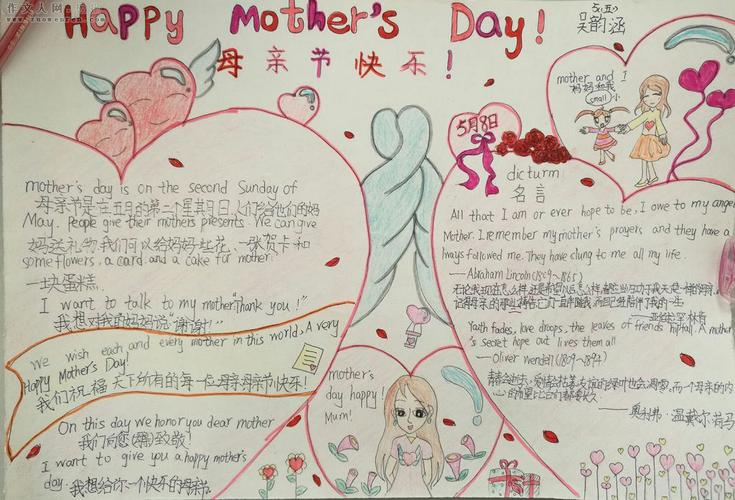 作文人网
Happy Mother's Day!
母亲节快乐!
五(五)
吴韵涵
mother and I
妈妈和我
(small)小
5月8日
mother's day is on the second Sunday of
母亲节是在五月的第二个星期日,人们给他们的妈
May. People give their mothers presents. We can give
妈送礼物,我们可以给妈妈红花、一张贺卡和
some flowers, a card and a cake for mother.
一块蛋糕.
I want to talk to my mother "Thank you!"
我想对我的妈妈说"谢谢!"
We wish each and every mother in this world, A very
Happy Mother's Day!
我们祝福天下所有的每一位母亲母亲节快乐!
On this day we honor you dear mother
我们向您致敬!
I want to give you a happy mother's
day. 我想给你一个快乐的母亲节
mother's
day happy!
Mum!
dicturm
名言
All that I am or ever hope to be, I owe to my angel
Mother. I remember my mother's prayers and they have a
lways followed me. They have clung to me all my life.
——Abraham Lincoln (1809~1865)
——亚伯拉罕林肯
Youth fades, love drops, the leaves of friends hipfall. A mother
's secret hope out lives them all
——Oliver wendell (1809~1894)
青春会逝去,爱情会枯萎,友谊的绿叶也会凋零,而一个母亲的内
心的希望比它们都要长久
——奥利弗·温戴尔·荷马